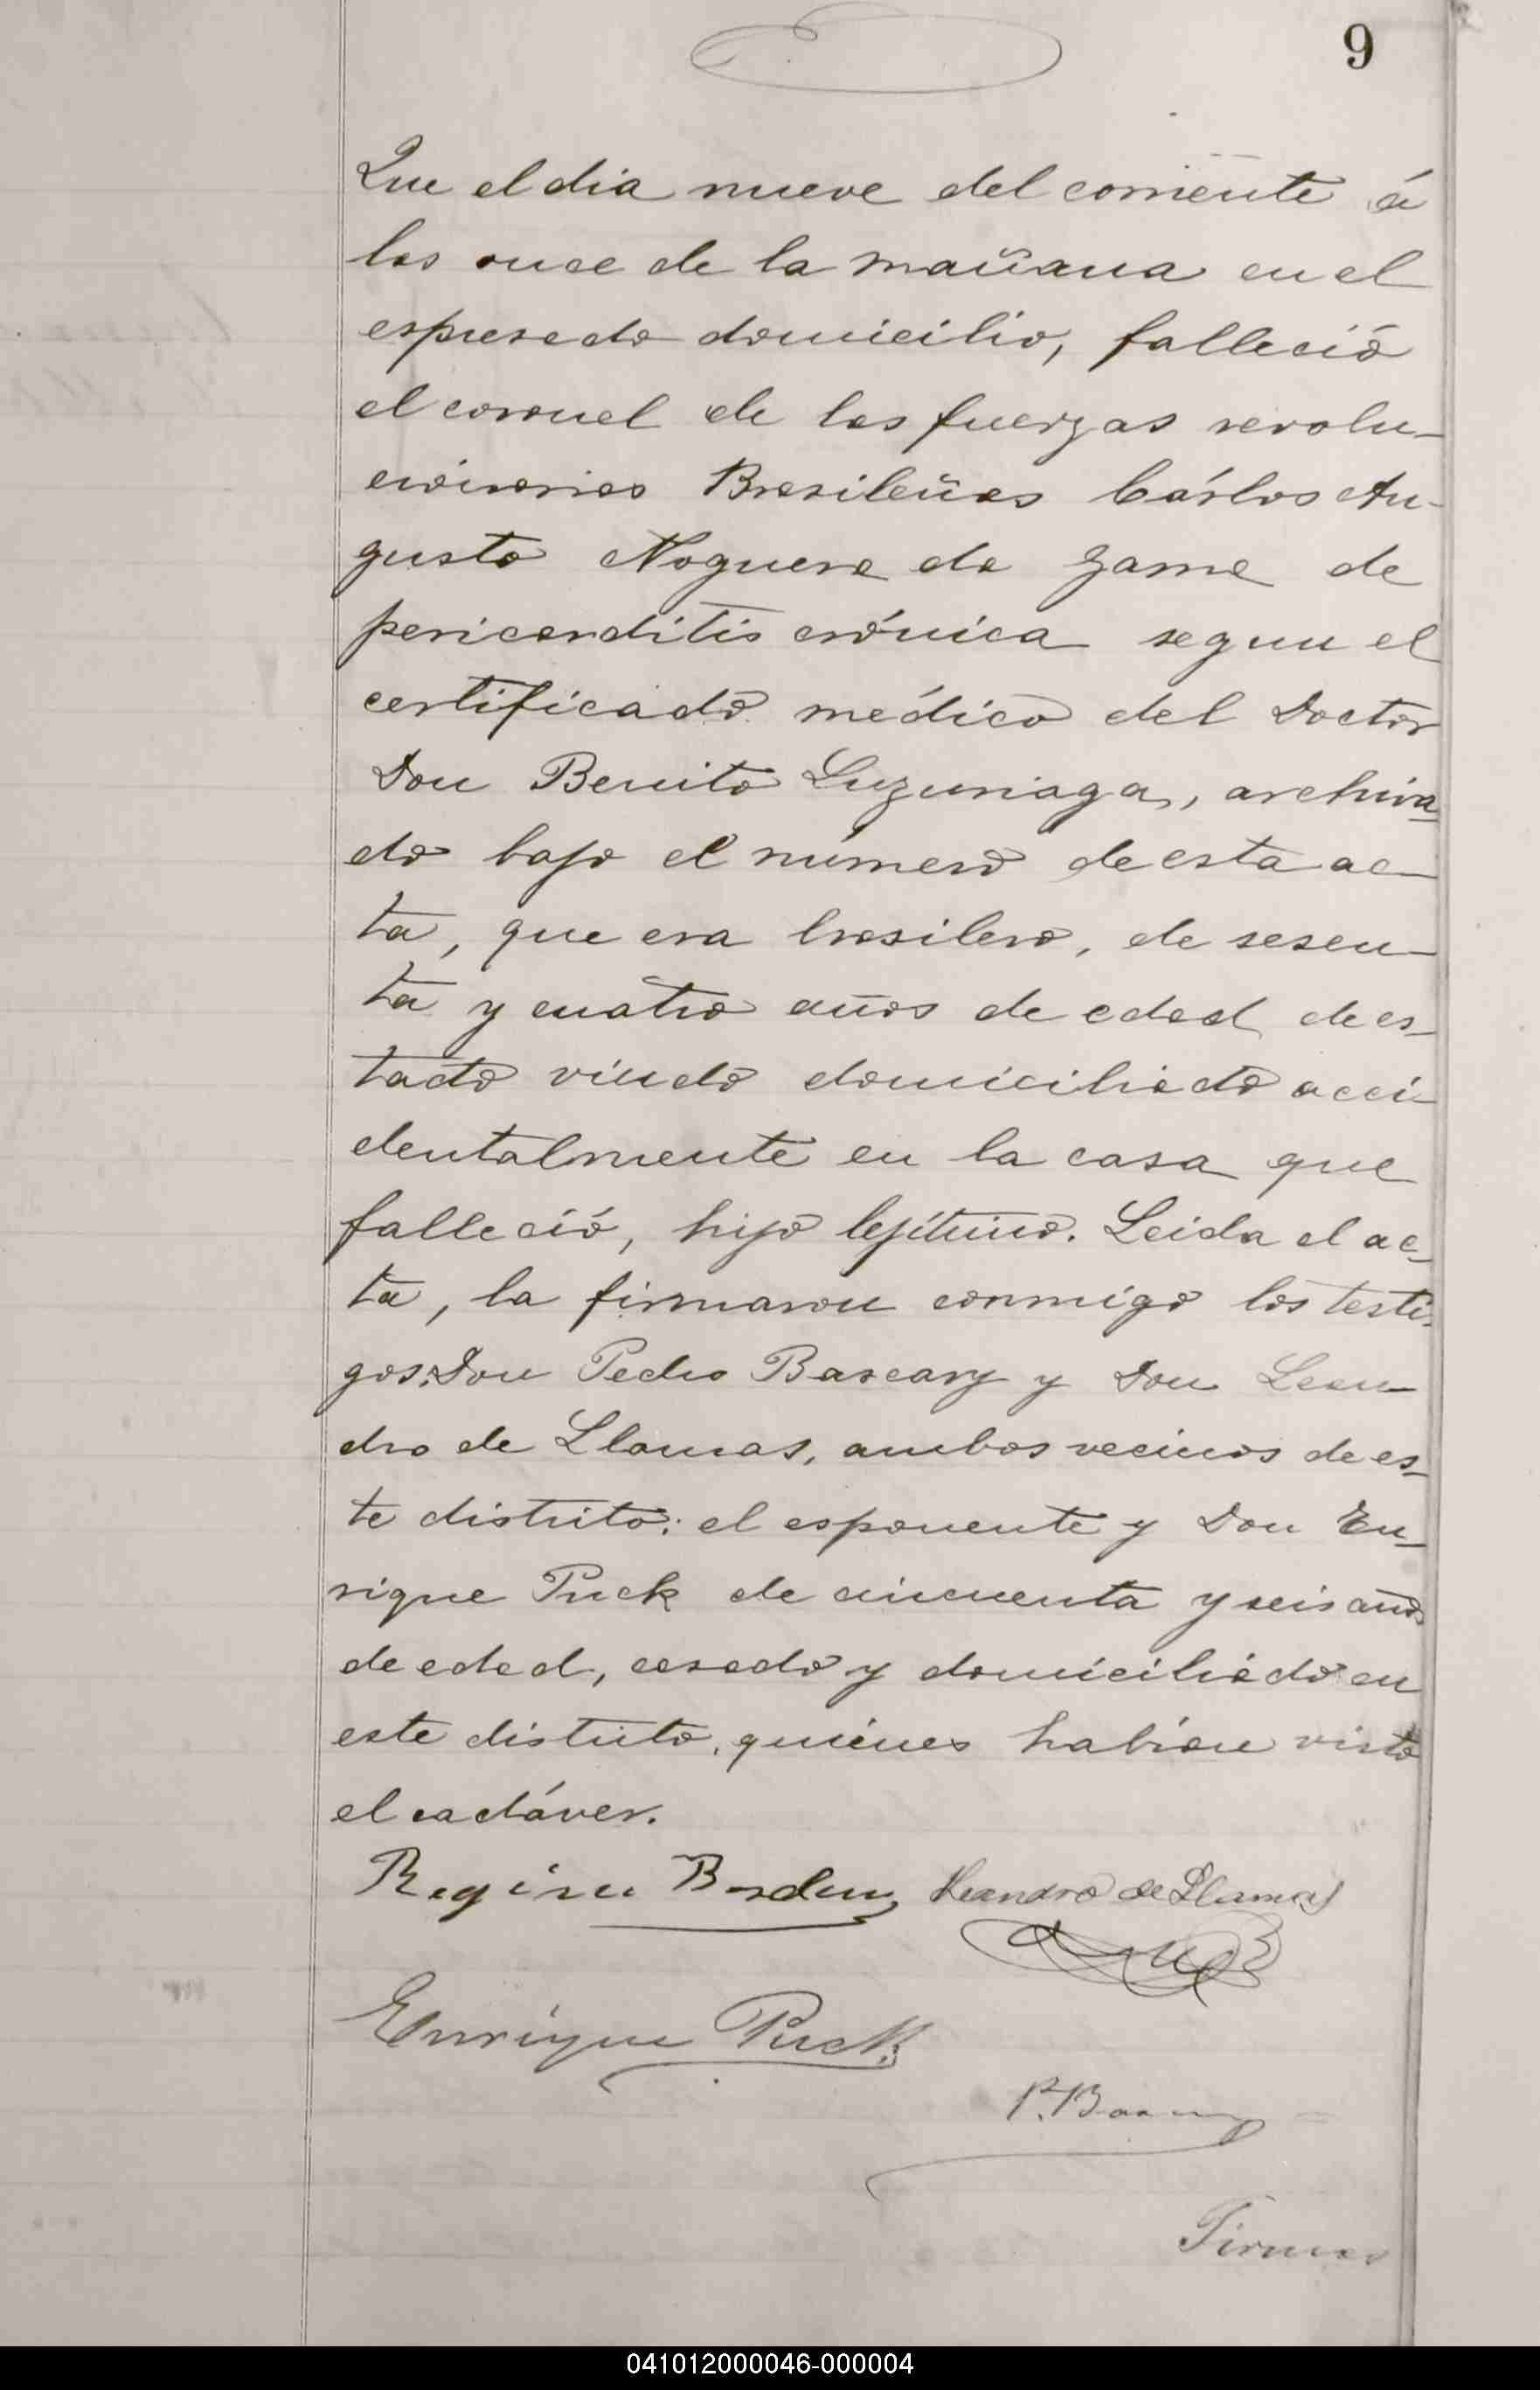 9
Que el dia nueve del corriente á
las once de la mañana en el
espresado domicilio, falleció
el coronel de las fuerzas revolu-
cionarias Brasileñas Cárlos Au-
gusto Noguera da Gama de
pericarditis crónica segun el
certificado médico del Doctor
Don Benito Luzuriaga, archiva-
do bajo el número de esta ac-
ta, que era brasilero, de sesen-
ta y cuatro años de edad, de es-
tado viudo domiciliado acci-
dentalmente en la casa que
falleció, hijo lejítimo. Leida el ac-
ta, la firmaron conmigo los testi-
gos: Don Pedro Bascary y Don Lean-
dro de Llamas, ambos vecinos de es-
te distrito: el esponente y Don En-
rique Puck de cincuenta y seis años
de edad, casado y domiciliado en
este distrito, quienes habian visto
el cadáver.
Leandro de Llamas
Enrique Puck
041012000046-000004